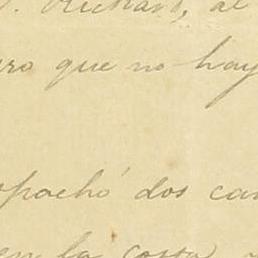 Richard, al
que no hay
pachó dos
en la costa